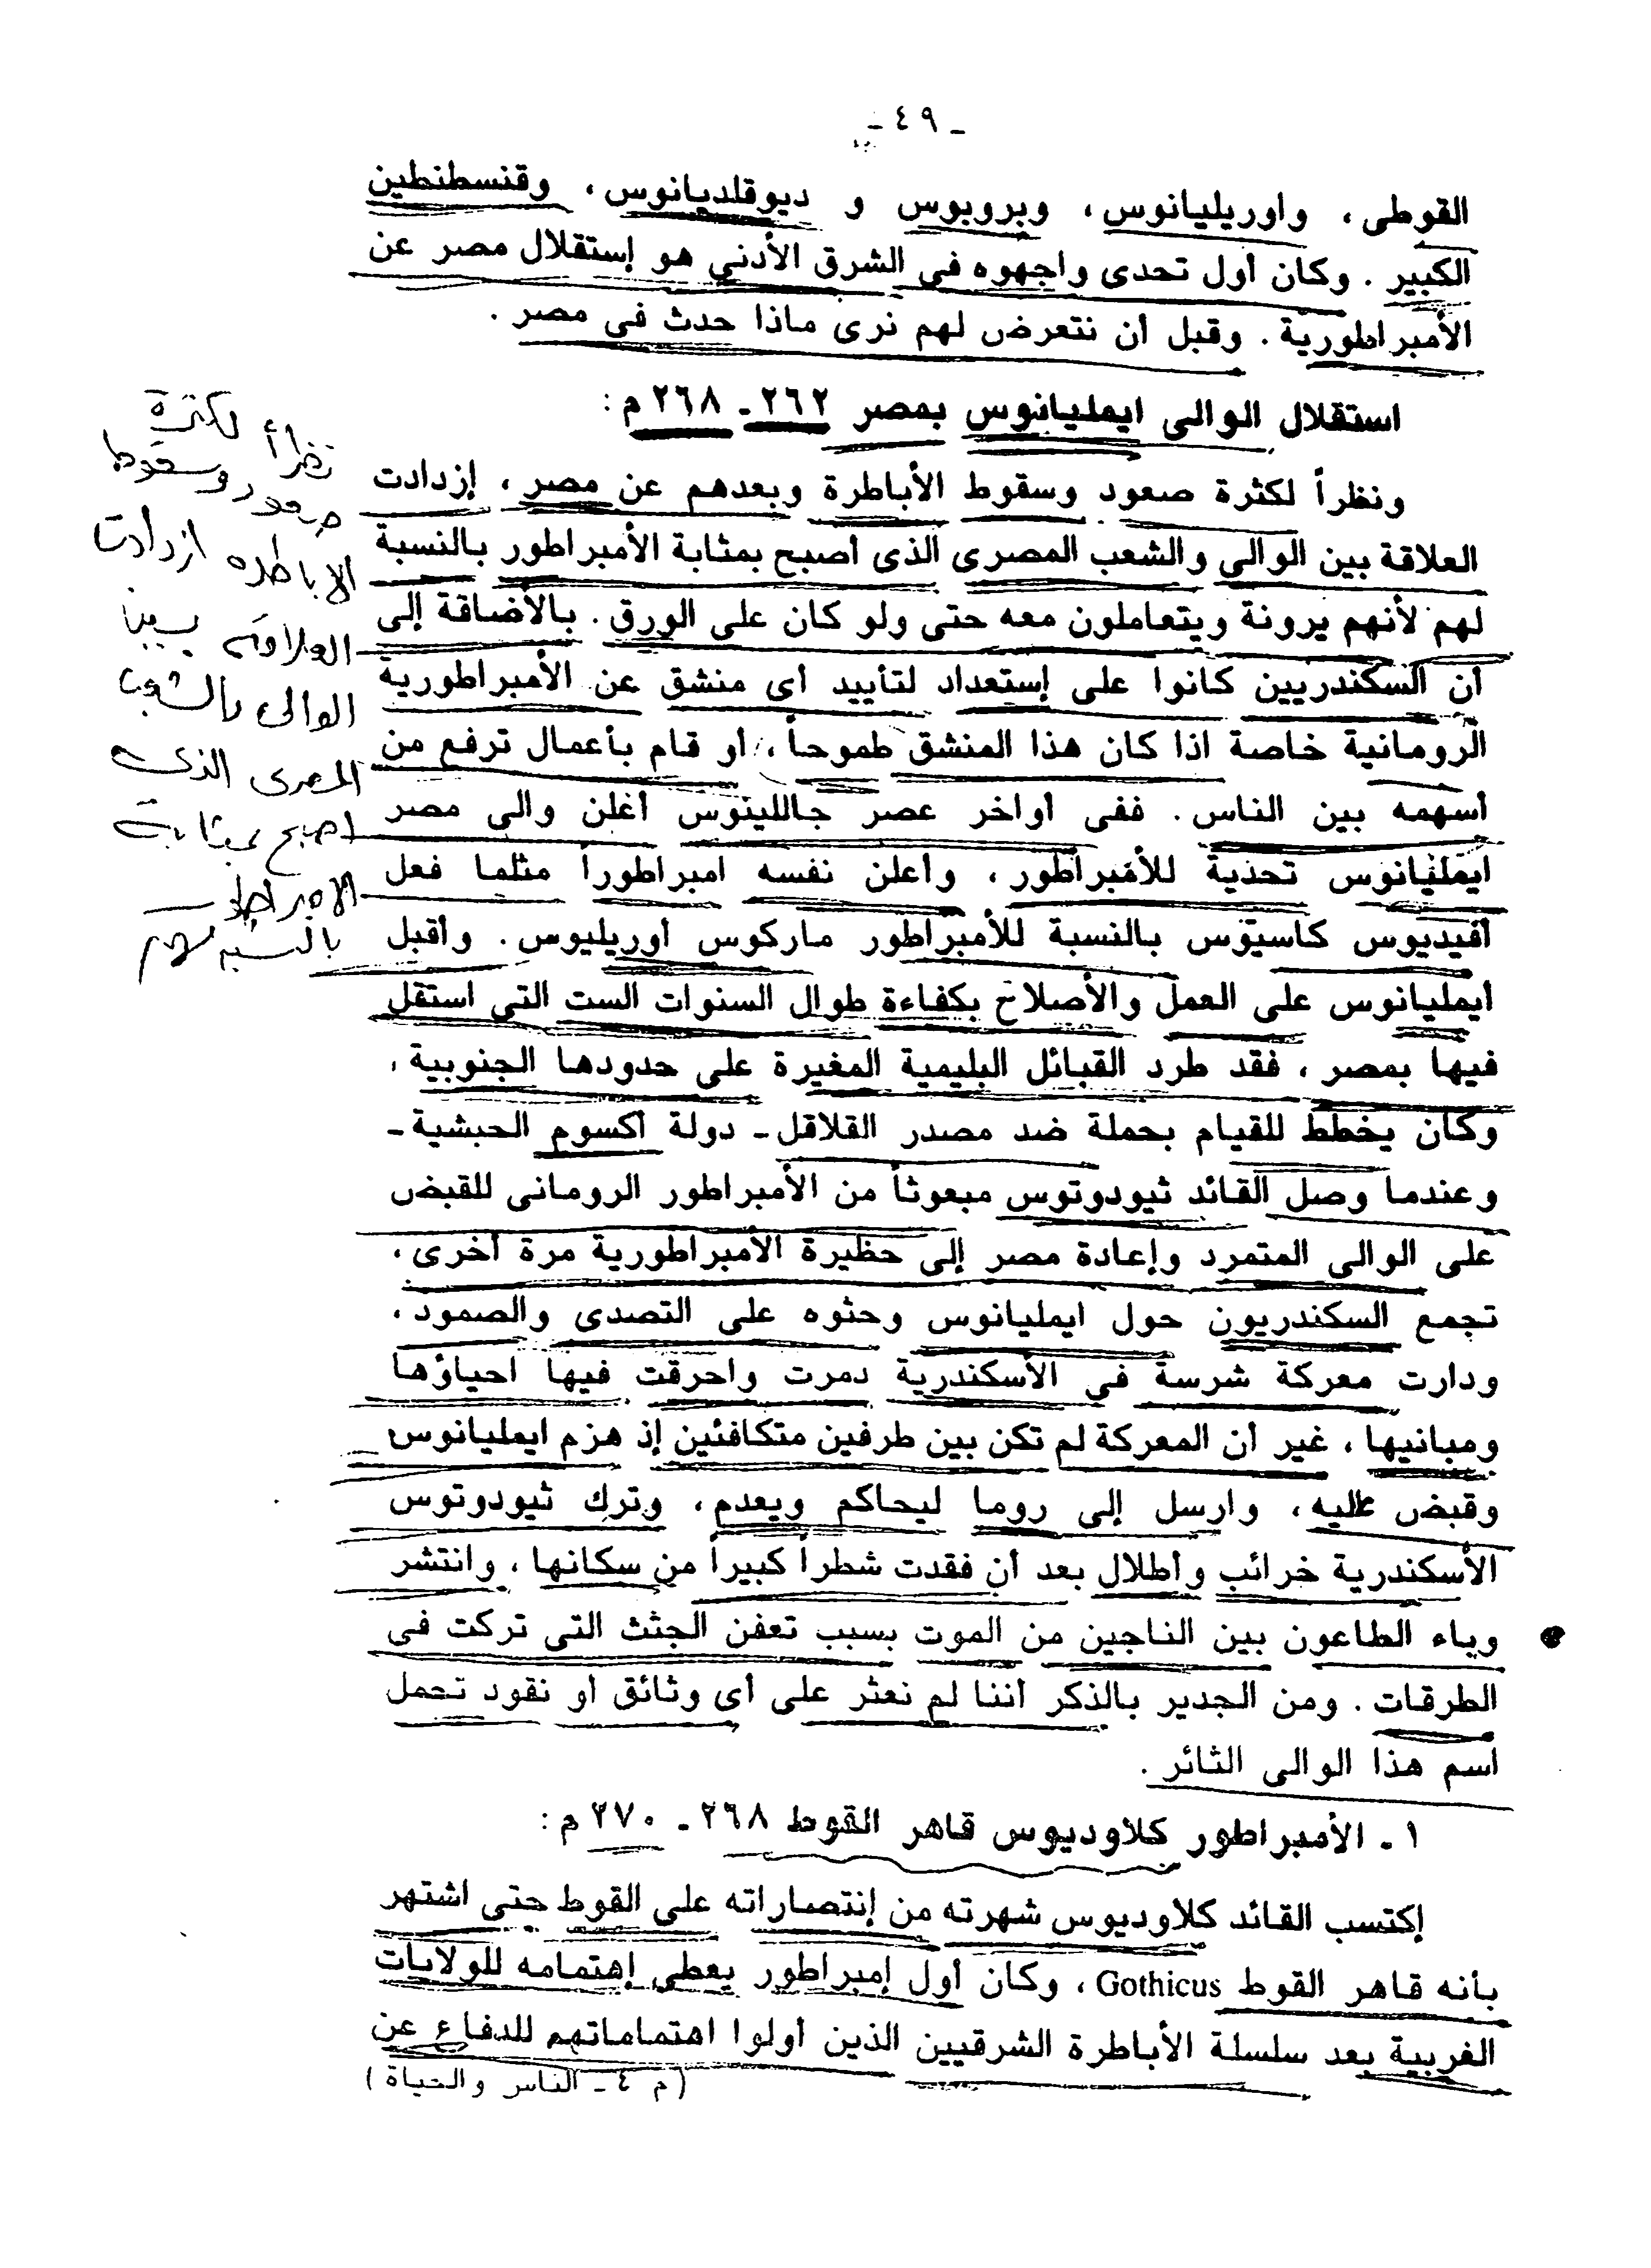 - ٤٩ -
القوطى ، واوريليانوس ، وبروبوس و ديوقلديانوس ، وقنسطنطين
الكبير . وكان أول تحدى واجهوه فى الشرق الأدنى هو إستقلال مصر عن
الأمبراطورية . وقبل أن نتعرض لهم نرى ماذا حدث فى مصر .
استقلال الوالى ايمليانوس بمصر ٢٦٢ - ٢٦٨ م :
ونظراً لكثرة صعود وسقوط الأباطرة وبعدهم عن مصر ، إزدادت
العلاقة بين الوالى والشعب المصرى الذى أصبح بمثابة الأمبراطور بالنسبة
لهم لأنهم يرونة ويتعاملون معه حتى ولو كان على الورق . بالأضاقة إلى
أن السكندريين كانوا على إستعداد لتأييد أى منشق عن الأمبراطورية
الرومانية خاصة اذا كان هذا المنشق طموحاً ، أو قام بأعمال ترفع من
أسهمه بين الناس . ففى أواخر عصر جاللينوس أعلن والى مصر
ايمليانوس تحدية للأمبراطور ، وأعلن نفسه امبراطوراً مثلما فعل
أفيديوس كاسيوس بالنسبة للأمبراطور ماركوس أوريليوس . وأقبل
أيمليانوس على العمل والأصلاح بكفاءة طوال السنوات الست التى استقل
فيها بمصر ، فقد طرد القبائل البليمية المغيرة على حدودها الجنوبية ،
وكان يخطط للقيام بحملة ضد مصدر القلاقل - دولة أكسوم الحبشية -
وعندما وصل القائد ثيودوتوس مبعوثاً من الأمبراطور الرومانى للقبض
على الوالى المتمرد وإعادة مصر إلى حظيرة الأمبراطورية مرة أخرى ،
تجمع السكندريون حول ايمليانوس وحثوه على التصدى والصمود ،
ودارت معركة شرسة فى الأسكندرية دمرت واحرقت فيها احياؤها
ومبانيها ، غير أن المعركة لم تكن بين طرفين متكافئين إذ هزم ايمليانوس
وقبض عليه ، وارسل إلى روما ليحاكم ويعدم ، وترك ثيودوتوس
الأسكندرية خرائب وأطلال بعد أن فقدت شطراً كبيراً من سكانها ، وانتشر
وباء الطاعون بين الناجين من الموت بسبب تعفن الجثث التى تركت فى
الطرقات . ومن الجدير بالذكر اننا لم نعثر على أى وثائق أو نقود تحمل
اسم هذا الوالى الثائر .
١ - الأمبراطور كلاوديوس قاهر القوط ٢٦٨ - ٢٧٠ م :
إكتسب القائد كلاوديوس شهرته من إنتصاراته على القوط حتى اشتهر
بأنه قاهر القوط Gothicus ، وكان أول إمبراطور يعطى إهتمامه للولايات
الغربية بعد سلسلة الأباطرة الشرقيين الذين أولوا اهتماماتهم للدفاع عن
( م ٤ - الناس والحياة )
نظرأ لكثرة
صعود وسقوط
الاباطره ازدادت
العلاقه بين
الوالى والشعب
المصرى الذى
اصبح بمثابة
الامبراطور
بالنسبه لهم